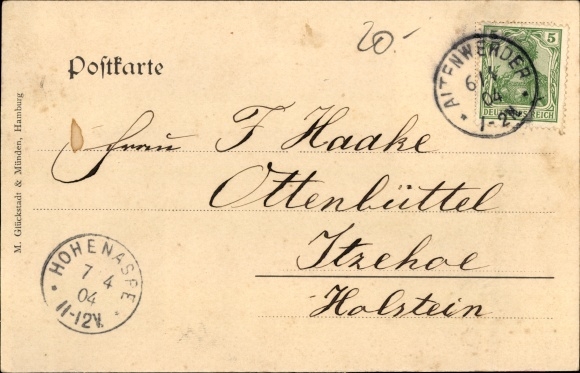 20.-
Postkarte
5
DEUTSCHES REICH
ALTENWERDER
6/4
04
1-2N.
Frau F Haake
Ottenbüttel
Itzehoe
Holstein
HOHENASPE
7 4
04
11-12V.
M. Glückstadt & Münden, Hamburg